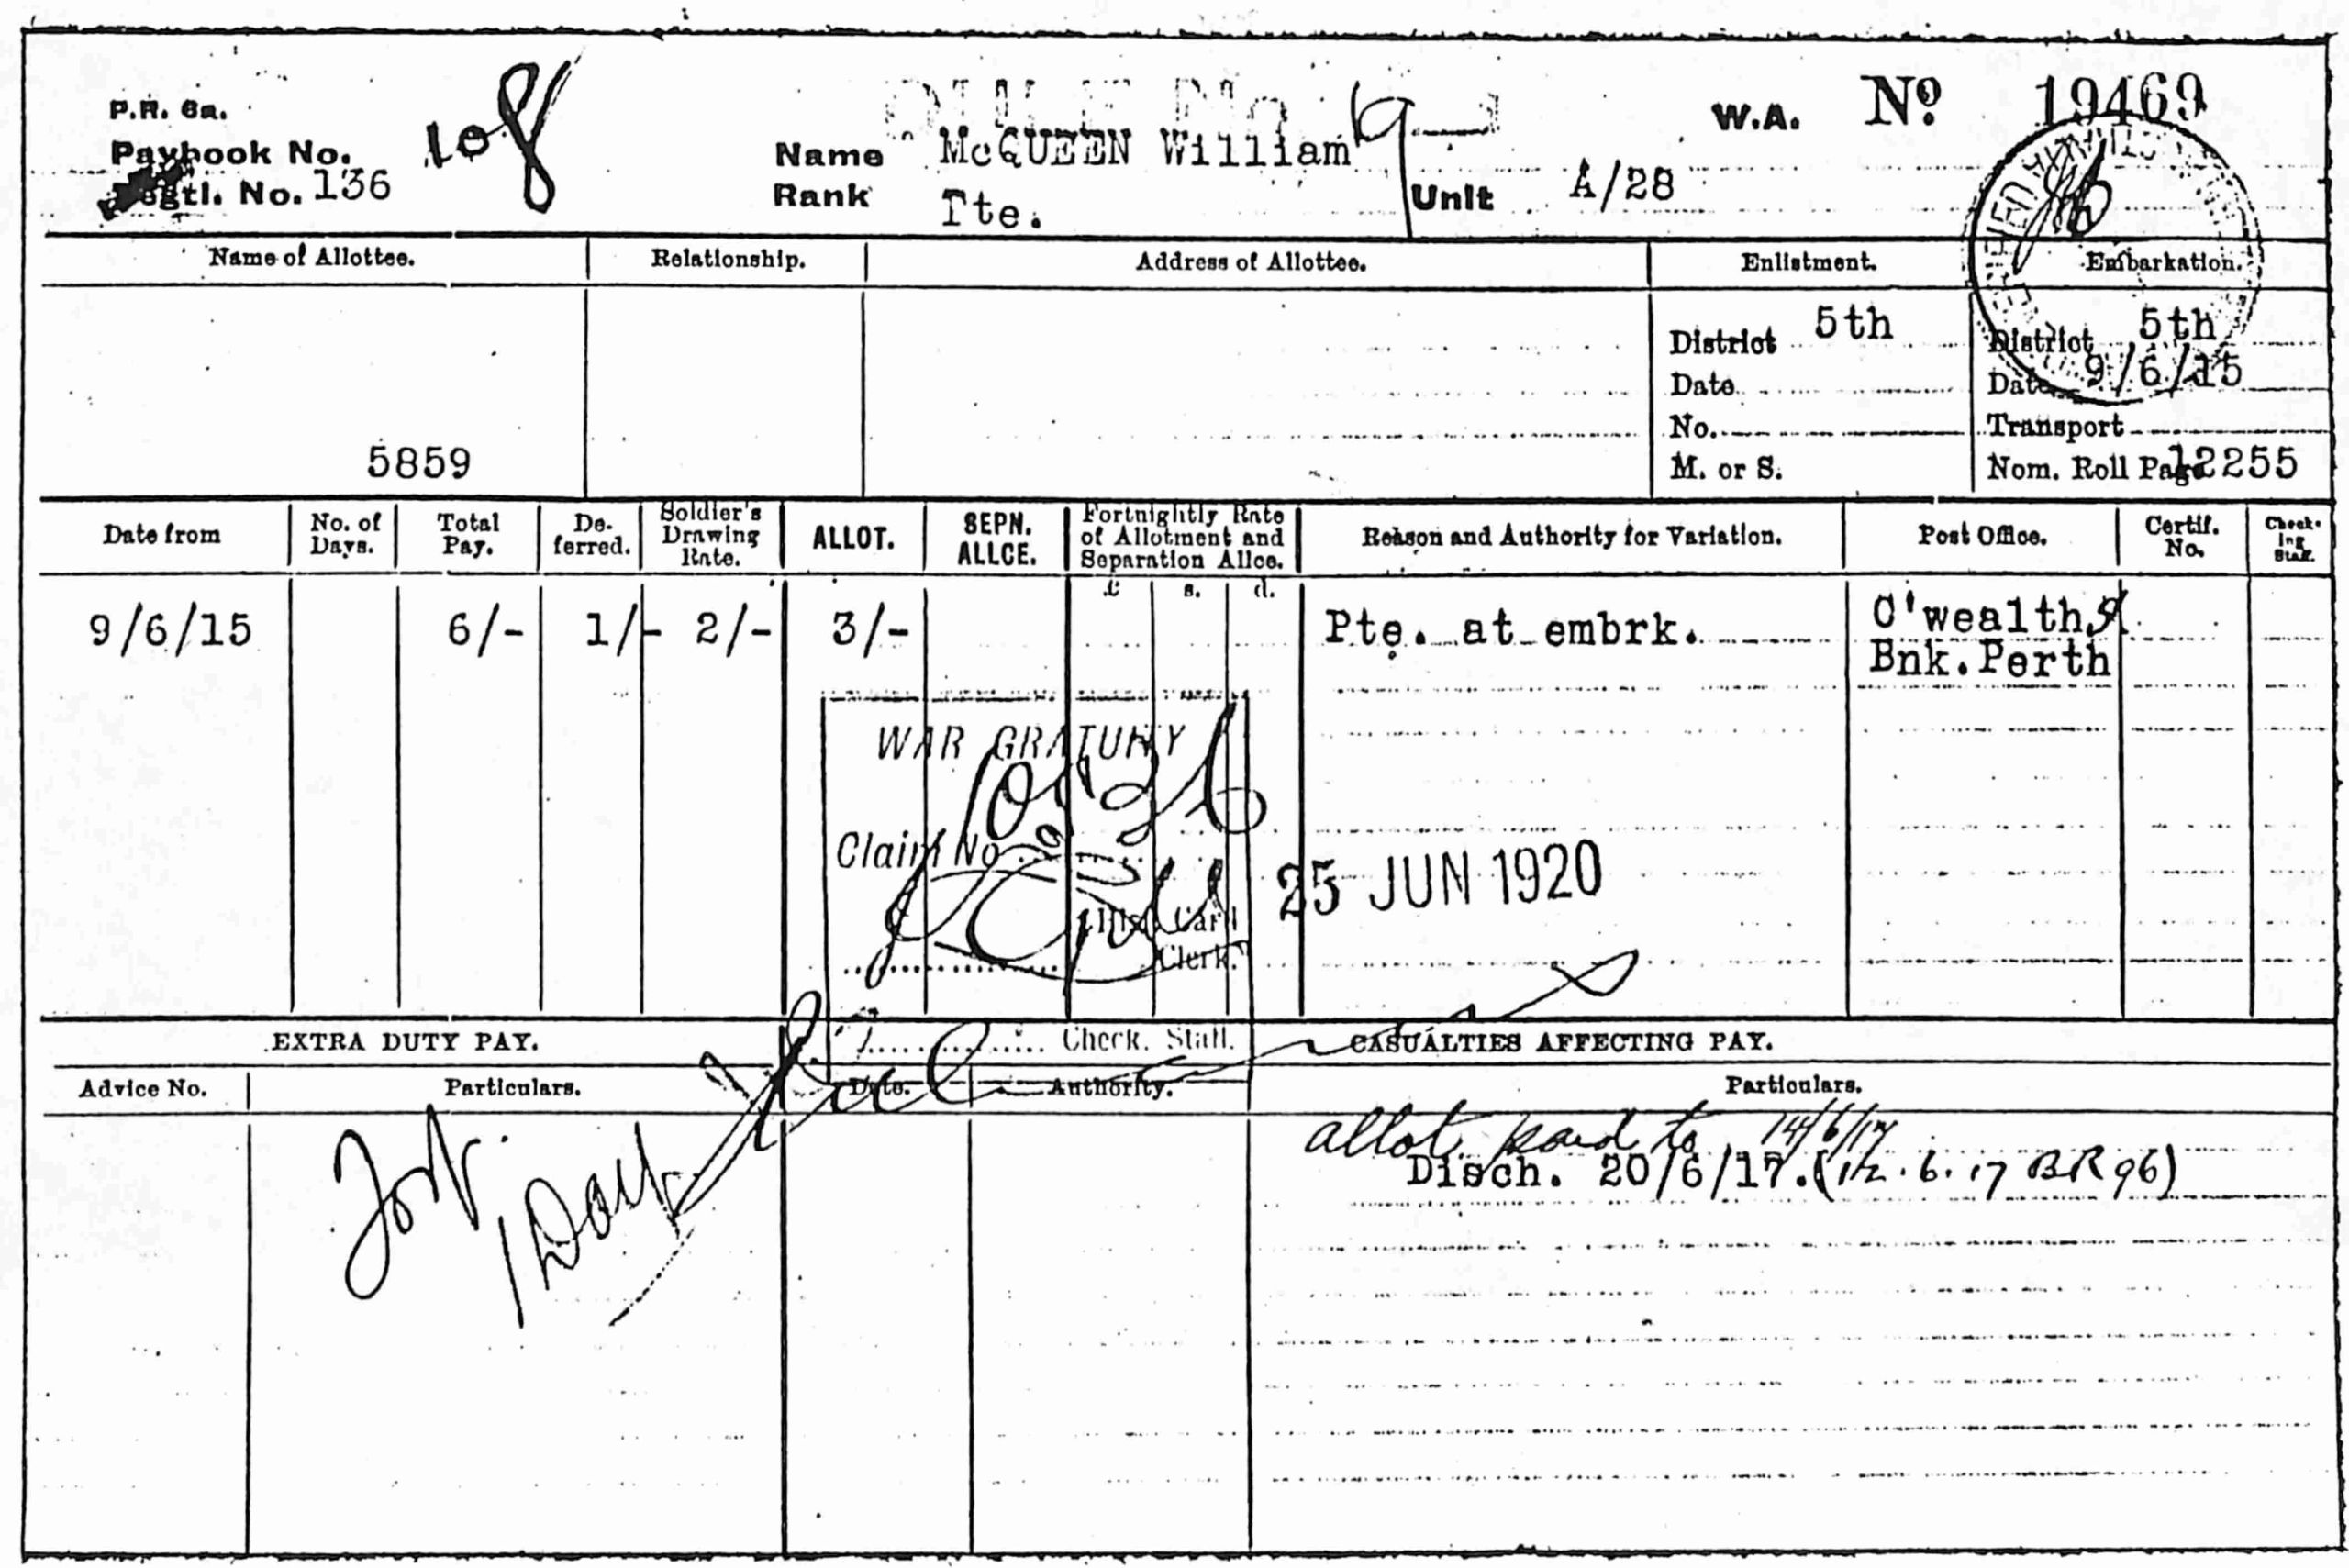 P.R. 6a.
Paybook No. 108
Regtl. No. 136
Name McQUEEN William
Rank Pte.
Unit A/28
W.A. No 19469
Name of Allottee. Relationship. Address of Allottee. Enlistment. Embarkation.
5859
District 5th
Date
No.
M. or S.
District 5th
Date 9/6/15
Transport
Nom. Roll Page 12255
Date from No. of Days. Total Pay. De-ferred. Soldier's Drawing Rate. ALLOT. SEPN. ALLCE. Fortnightly Rate of Allotment and Separation Allce. Reason and Authority for Variation. Post Office. Certif. No. Check-ing Staff.
£ s. d.
9/6/15 6/- 1/- 2/- 3/- Pte. at embrk. C'wealth
Bnk. Perth
WAR GRATUITY
Claim No
25 JUN 1920
Card
Clerk.
Check. Staff.
EXTRA DUTY PAY. CASUALTIES AFFECTING PAY.
Advice No. Particulars. Date. Authority. Particulars.
allot paid to 14/6/17
Disch. 20/6/17. (12.6.17 BR 96)